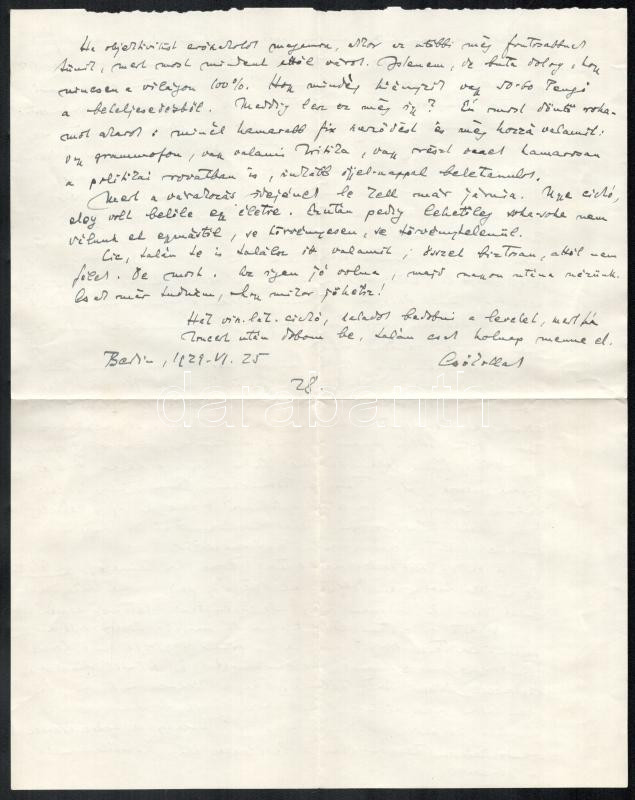 Ha objektivitást erőszakolok magamra, akkor ez utóbbi még fontosabbnak
tűnik, mert most mindent ettől várok. Istenem, de buta dolog, hogy
nincsen a világon 100%. Hogy mindég hiányzik vagy 50-60 Pengő
a beteljesedésből. Meddig lesz ez még így? Én most döntő roha-
mot akarok: minél hamarabb fix és még hozzá valamit:
vagy grammofon, vagy valamis kritika, vagy részt veszek hamarosan
a politikai rovatban is, inkább éjjel-nappal
Mert a várakozás idejének le kell már járnia. Nyx cickó,
elég volt belőle egy életre. Ezután pedig lehetőleg soha-soha nem
válunk el egymástól, se törvényesen, se törvénytelenül.
talán te is találsz itt valamit; összel biztosan, attól nem
félek. De most. Az igen jó volna, majd nagyon utána nézünk.
Csak már tudnám, hogy mikor jöhetsz!
Hát cickó, szaladok bedobni a levelet, mert ha
után dobom be, talán csak holnap menne el.
Berlin, 1929. VI. 25
Csókollak
28.
darabanth